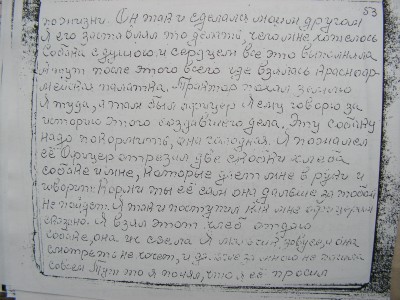 53
по жизни. Он так и сделался моим другом
я его заставлял то делать чего мне хотелось
собака с душою и сердцем все это выполняла
и вдруг после этого всего где взялась Красноар-
мейская палатка.
я туда, а там был офицер я ему говорю за
историю этого создавшего дела, эту собаку
надо покормить, она голодная. И познался
её Офицер отрезал две скибки хлеба
собаке и мне, которые дает мне в руки и
говорит: Корми ты её сам она дальше за тобой
не пойдет. Я так и поступил как мне офицером
сказано. Я взял этот хлеб отдаю
собаке, она их съела я зову ее и она
смотреть не хочет, и дальше за мною не пошла
совсем что я понял, что я её просил